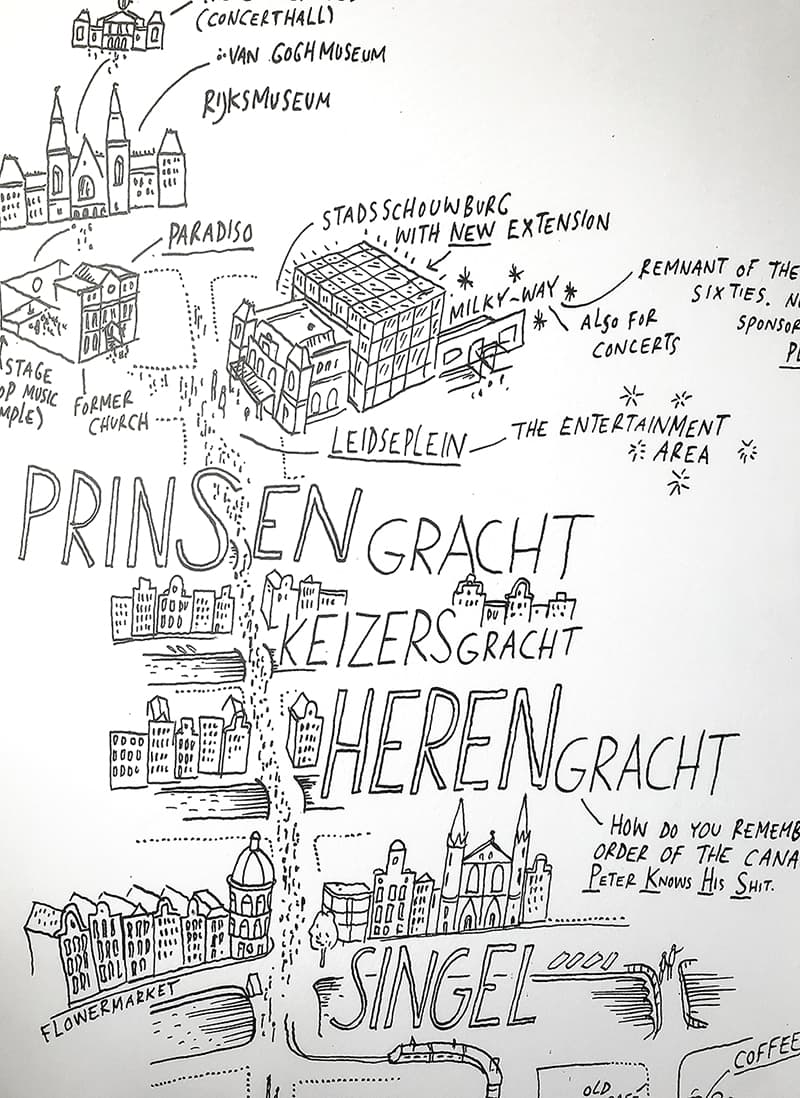 (CONCERTHALL)
VAN GOGH MUSEUM
RIJKSMUSEUM
PARADISO
STADSSCHOUWBURG
WITH NEW EXTENSION
MILKY-WAY
REMNANT OF THE
SIXTIES.
ALSO FOR
CONCERTS
STAGE
MUSIC
FORMER
CHURCH
LEIDSEPLEIN
THE ENTERTAINMENT
AREA
PRINSENGRACHT
KEIZERSGRACHT
HERENGRACHT
HOW DO YOU
ORDER OF THE
PETER KNOWS HIS SHIT.
FLOWERMARKET
SINGEL
COFFEE
OLD